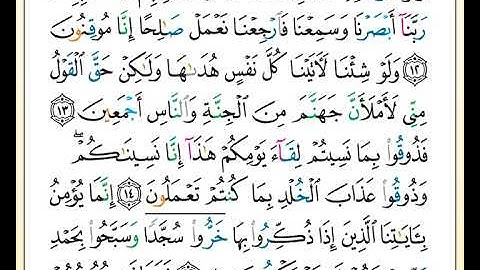 رَبَّنَآ أَبۡصَرۡنَا وَسَمِعۡنَا فَٱرۡجِعۡنَا نَعۡمَلۡ صَٰلِحًا إِنَّا مُوقِنُونَ
١٢ وَلَوۡ شِئۡنَا لَأٓتَيۡنَا كُلَّ نَفۡسٍ هُدَىٰهَا وَلَٰكِنۡ حَقَّ ٱلۡقَوۡلُ
مِنِّي لَأَمۡلَأَنَّ جَهَنَّمَ مِنَ ٱلۡجِنَّةِ وَٱلنَّاسِ أَجۡمَعِينَ ١٣
فَذُوقُواْ بِمَا نَسِيتُمۡ لِقَآءَ يَوۡمِكُمۡ هَٰذَآ إِنَّا نَسِينَٰكُمۡۖ
وَذُوقُواْ عَذَابَ ٱلۡخُلۡدِ بِمَا كُنتُمۡ تَعۡمَلُونَ ١٤ إِنَّمَا يُؤۡمِنُ
بِـَٔايَٰتِنَا ٱلَّذِينَ إِذَا ذُكِّرُواْ بِهَا خَرُّواْ سُجَّدًا وَسَبَّحُواْ بِحَمۡدِ